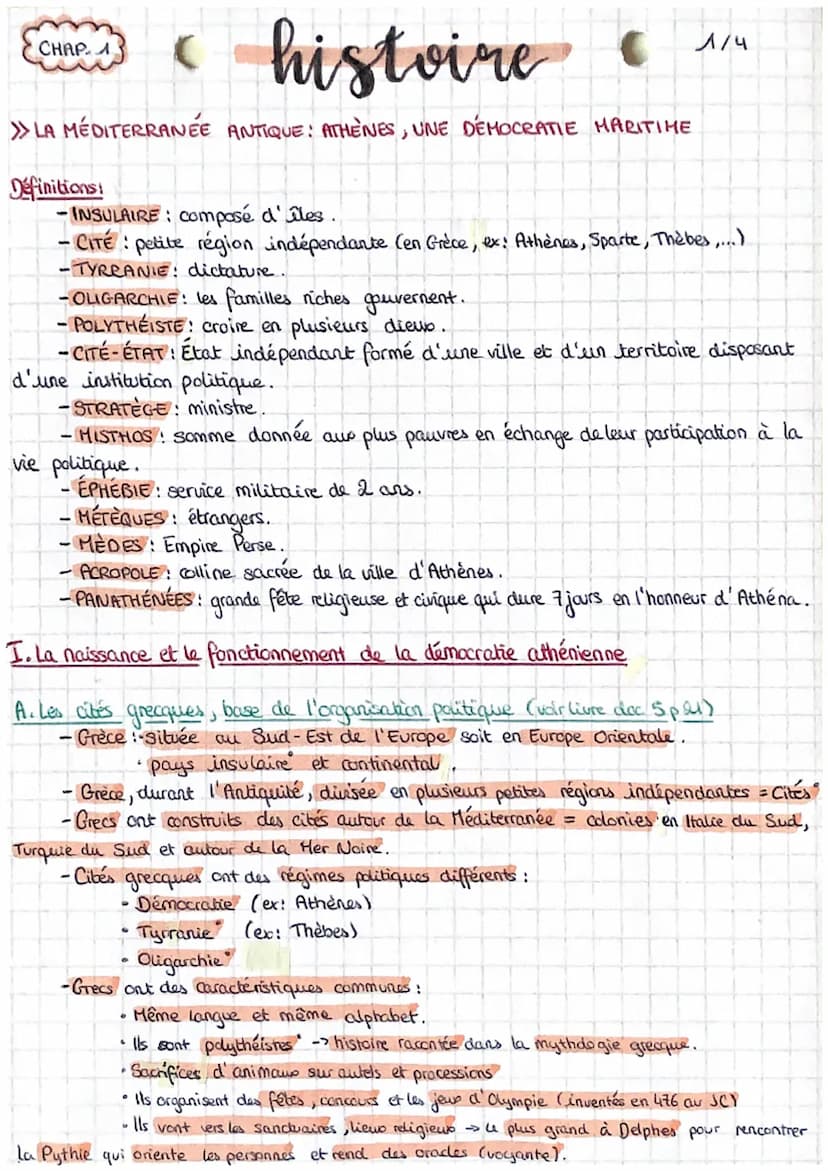 CHAP. 1
histoire
1/4
>> LA MÉDITERRANÉE ANTIQUE : ATHÈNES, UNE DÉMOCRATIE MARITIME
Définitions :
- INSULAIRE : composé d'îles.
- CITÉ : petite région indépendante (en Grèce, ex : Athènes, Sparte, Thèbes,...)
- TYRRANIE : dictature.
- OLIGARCHIE : les familles riches gouvernent.
- POLYTHÉISTE : croire en plusieurs dieux.
- CITÉ-ÉTAT : État indépendant formé d'une ville et d'un territoire disposant
d'une institution politique.
- STRATÈGE : ministre.
- MISTHOS : somme donnée aux plus pauvres en échange de leur participation à la
vie politique.
- ÉPHÉBIE : service militaire de 2 ans.
- MÉTÈQUES : étrangers.
- MÈDES : Empire Perse.
- ACROPOLE : colline sacrée de la ville d'Athènes.
- PANATHÉNÉES : grande fête religieuse et civique qui dure 7 jours en l'honneur d'Athéna.
I. La naissance et le fonctionnement de la démocratie athénienne
A. Les cités grecques, base de l'organisation politique (voir livre doc 5 p 21)
- Grèce : • située au Sud-Est de l'Europe soit en Europe Orientale.
• pays insulaire° et continental.
- Grèce, durant l'Antiquité, divisée en plusieurs petites régions indépendantes = Cités°
- Grecs ont construits des cités autour de la Méditerranée = colonies en Italie du Sud,
Turquie du Sud et autour de la Mer Noire.
- Cités grecques ont des régimes politiques différents :
• Démocratie (ex : Athènes)
• Tyrranie° (ex : Thèbes)
• Oligarchie°
- Grecs ont des caractéristiques communes :
• Même langue et même alphabet.
• Ils sont polythéistes° -> histoire racontée dans la mythologie grecque.
• Sacrifices d'animaux sur autels et processions
• Ils organisent des fêtes, concours et les jeux d'Olympie (inventés en 476 av JC)
• Ils vont vers les sanctuaires, lieux religieux -> le plus grand à Delphes pour rencontrer
la Pythie qui oriente les personnes et rend des oracles (voyante).